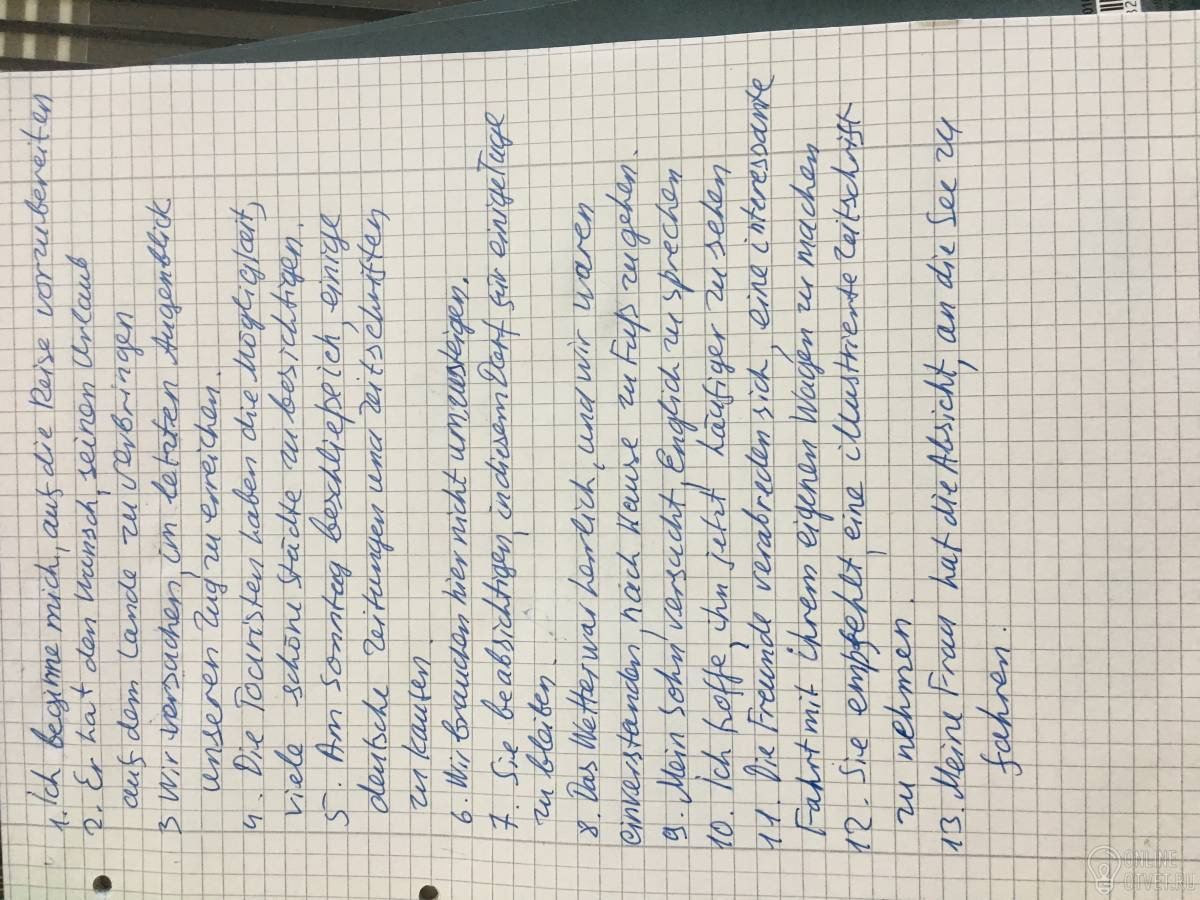 1. Ich begume mich, auf die Reise vorzubereiten
2. Er hat den Wunsch, seinen Urlaub
auf dem Lande zu verbringen
3 Wir versuchen, im letzten Augenblick
unseren Zug zu erreichen.
4. Die Touristen haben die Mögligkeit,
viele schöne Städte zu besichtigen.
5. Am Sonntag beschließe ich, einige
deutsche Zeitungen und Zeitschriften
zu kaufen
6. Wir brauchen hier nicht umzusteigen.
7. Sie beabsichtigen, in diesem Dorf für einige Tage
zu bleiben
8. Das Wetter war herrlich, und wir waren
einverstanden, nach Hause zu Fuß zu gehen.
9. Mein Sohn versucht, Englich zu sprechen
10. Ich hoffe, ihn jetzt häufiger zu sehen
11. Die Freunde verabreden sich, eine interessante
Fahrt mit ihrem eigenen Wagen zu machen
12. Sie empfehlt, eine illustriente Zeitschrift
zu nehmen.
13. Meine Frau hat die Absicht, an die See zu
fahren.
ONLINE
OTVET.RU